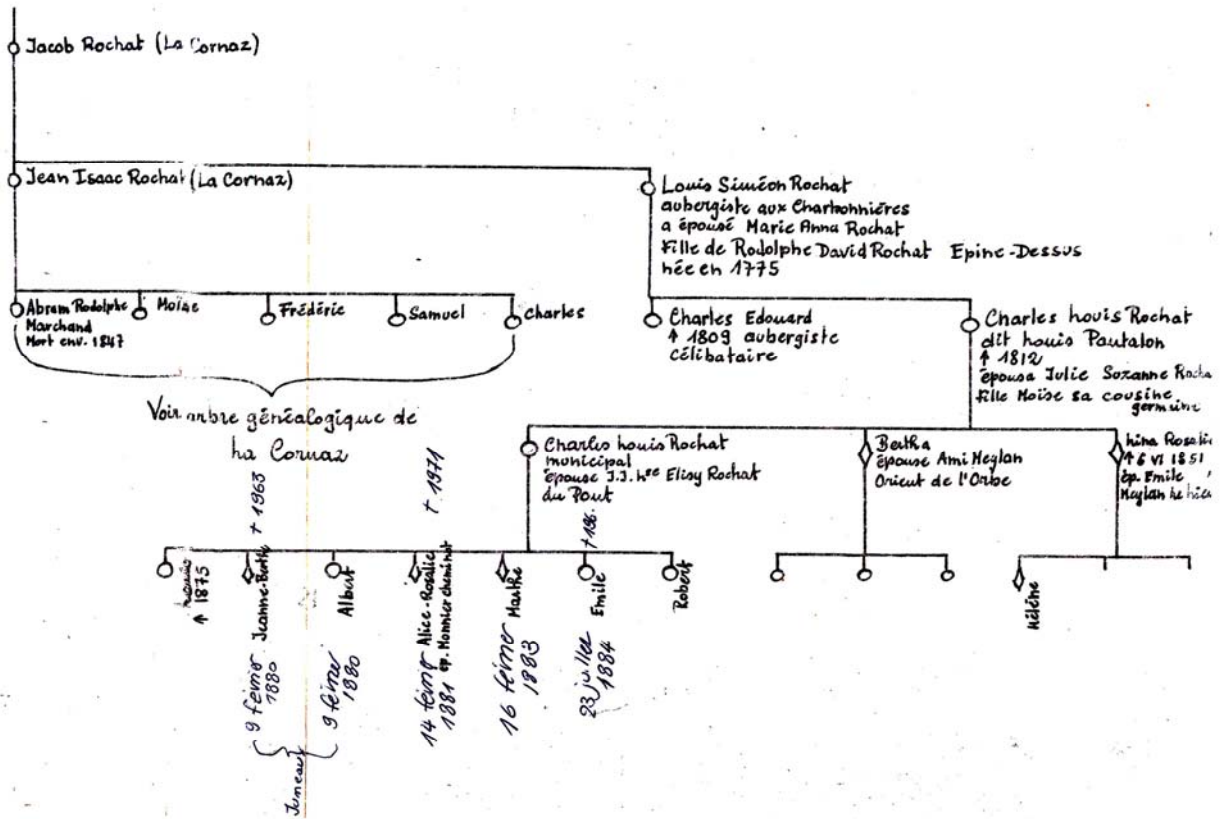 Jacob Rochat (La Cornaz)
Jean Isaac Rochat (La Cornaz)
Louis Siméon Rochat
aubergiste aux Charbonnières
a épousé Marie Anna Rochat
Fille de Rodolphe David Rochat Epine-Dessus
née en 1775
Abram Rodolphe
Marchand
Mort env. 1847
Moïse
Frédéric
Samuel
Charles
Charles Edouard
↑ 1809 aubergiste
célibataire
Charles Louis Rochat
dit Louis Pantalon
↑ 1812
épousa Julie Suzanne Rocha
fille Moïse sa cousine
germaine
Voir arbre généalogique de
La Cornaz
Charles Louis Rochat
municipal
épouse J.J. Lse Elisy Rochat
du Pont
Bertha
épouse Ami Meylan
Orient de l'Orbe
Lina Rosalie
↑ 6 VI 1851
ép. Emile
Meylan Le Lieu
↑ 1875
Jeanne-Berthe † 1963
9 février
1880
Albert
9 février
1880
Jumeaux
Alice-Rosalie † 1971
ép. Monnier cheminot
14 février
1881
Marthe
16 février
1883
Emile † 196.
23 juillet
1884
Robert
Hélène